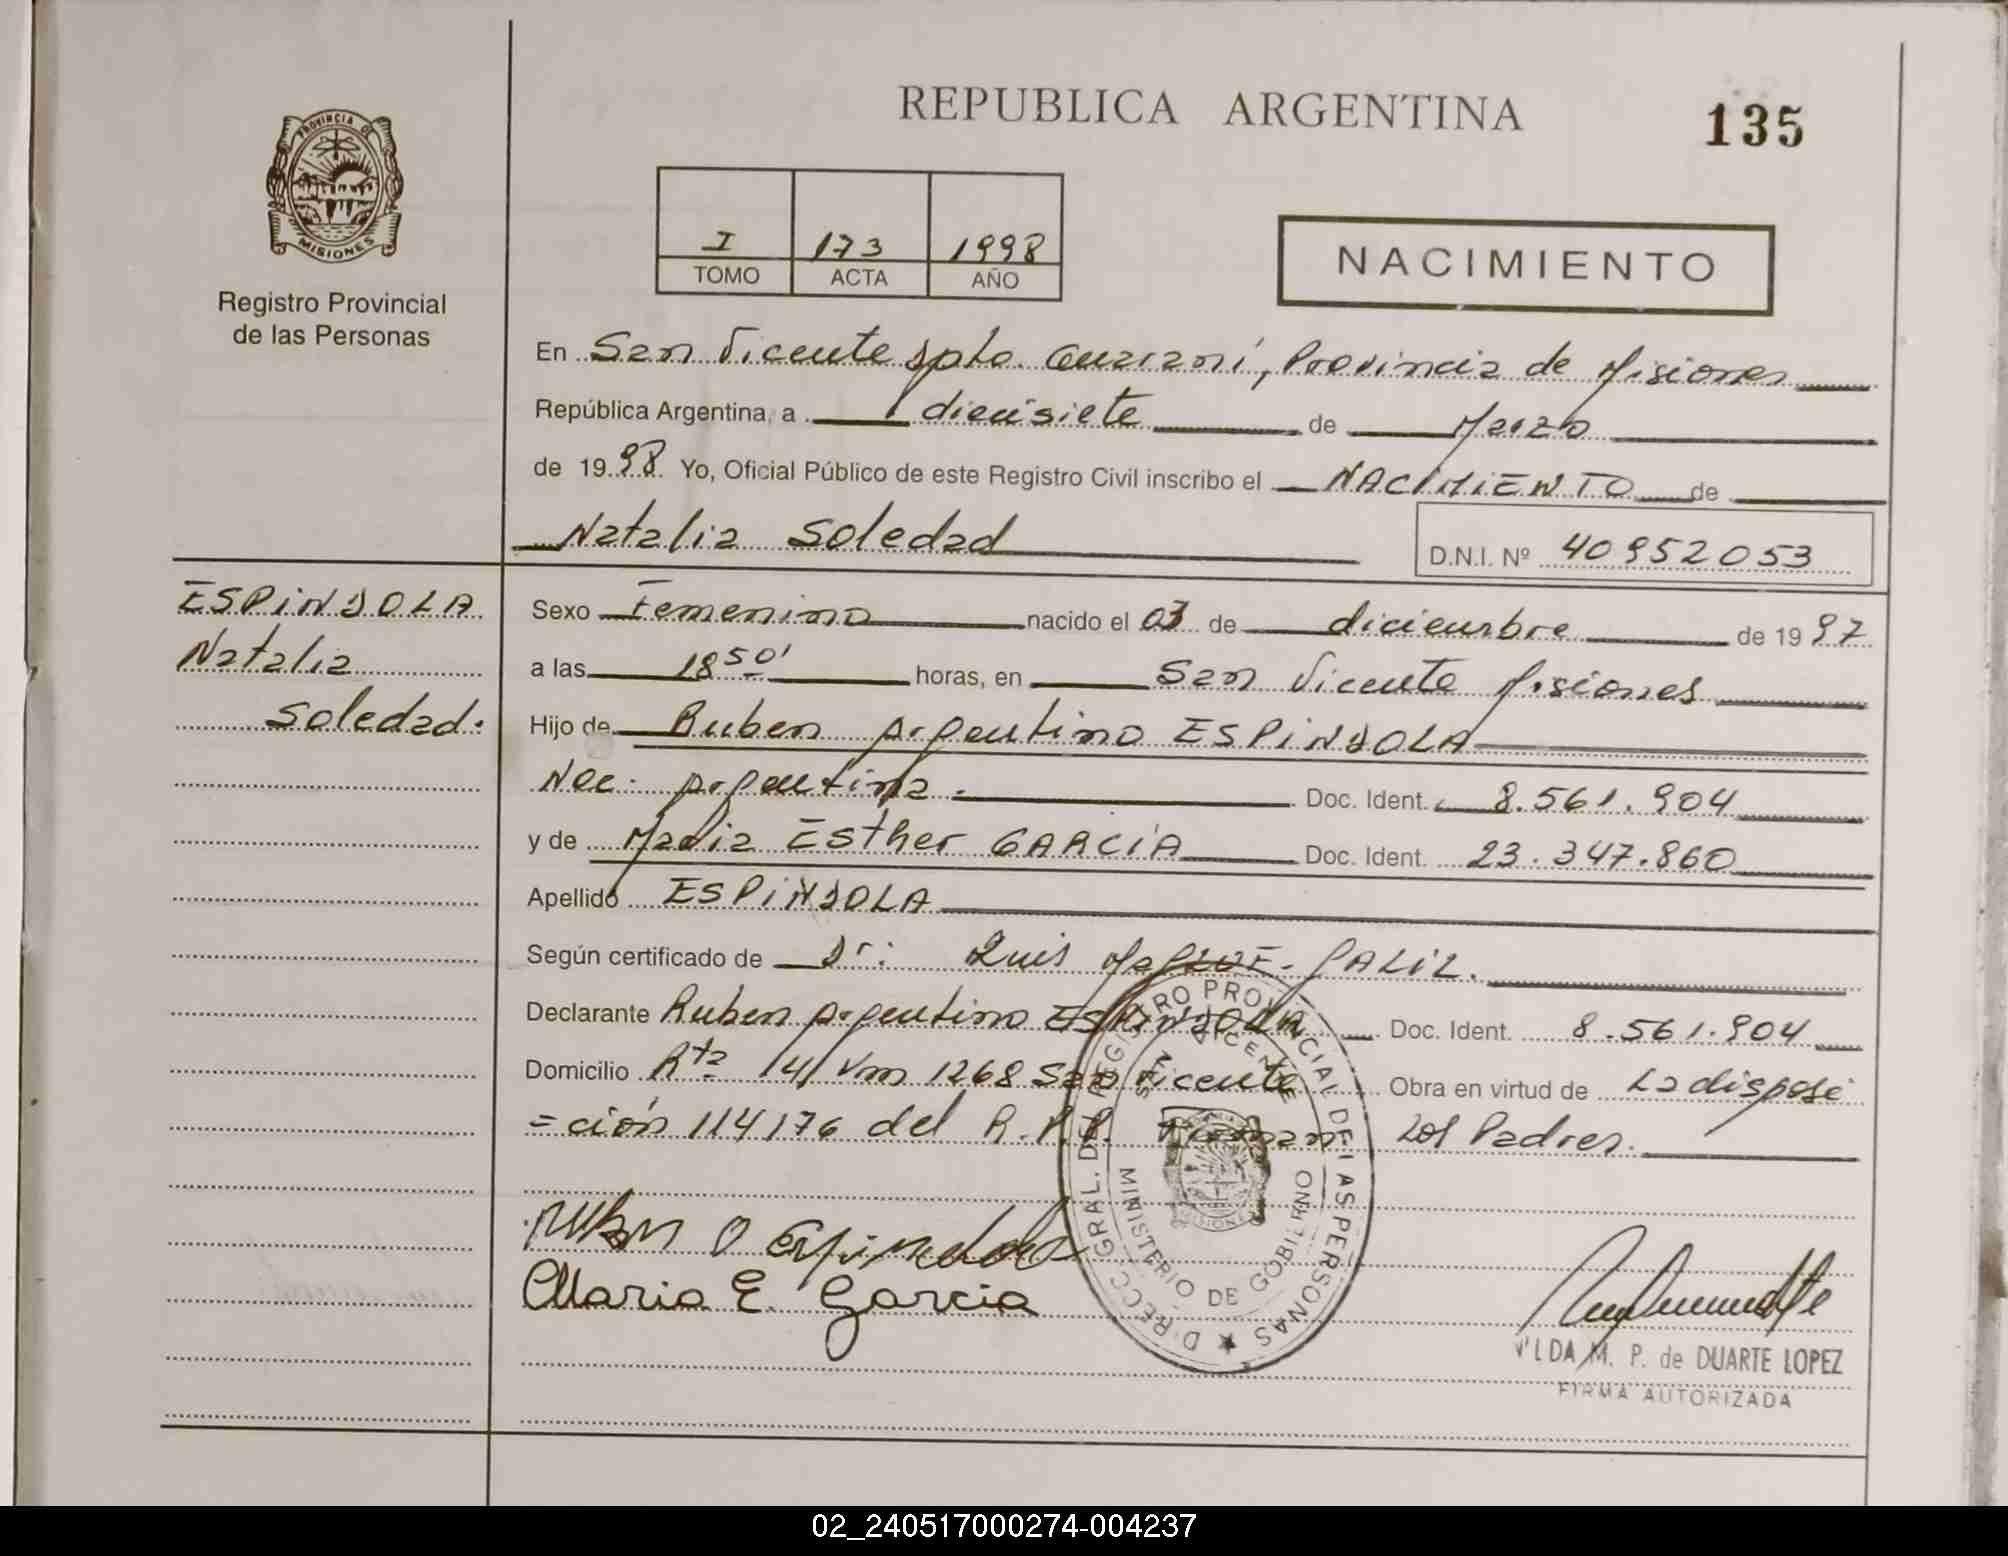 REPUBLICA ARGENTINA
135
PROVINCIA DE
MISIONES
Registro Provincial
de las Personas
I 173 1998
TOMO ACTA AÑO
NACIMIENTO
En San Vicente Dpto. Guaraní, Provincia de Misiones
República Argentina, a diecisiete de Marzo
de 1998 Yo, Oficial Público de este Registro Civil inscribo el NACIMIENTO de
Natalia Soledad
D.N.I. Nº 40952053
ESPINDOLA
Natalia
Soledad.
Sexo Femenino nacido el 03 de diciembre de 1997
a las 18 50' horas, en San Vicente Misiones
Hijo de Ruben Argentino ESPINDOLA
Nac. Argentina. Doc. Ident. 8.561.904
y de Maria Esther GARCIA Doc. Ident. 23.347.860
Apellido ESPINDOLA
Según certificado de Dr: Luis
Declarante Ruben Argentino ESPINDOLA Doc. Ident. 8.561.904
Domicilio Rta 14 Km 1268 San Vicente Obra en virtud de La disposi
=ción 114/76 del R.P.P. Firman los Padres.
Ruben A Espindola
Maria E. Garcia
DIRECC. GRAL. DEL REGISTRO PROVINCIAL DE LAS PERSONAS
SAN VICENTE
MINISTERIO DE GOBIERNO
MISIONES
VILDA M. P. de DUARTE LOPEZ
FIRMA AUTORIZADA
02_240517000274-004237